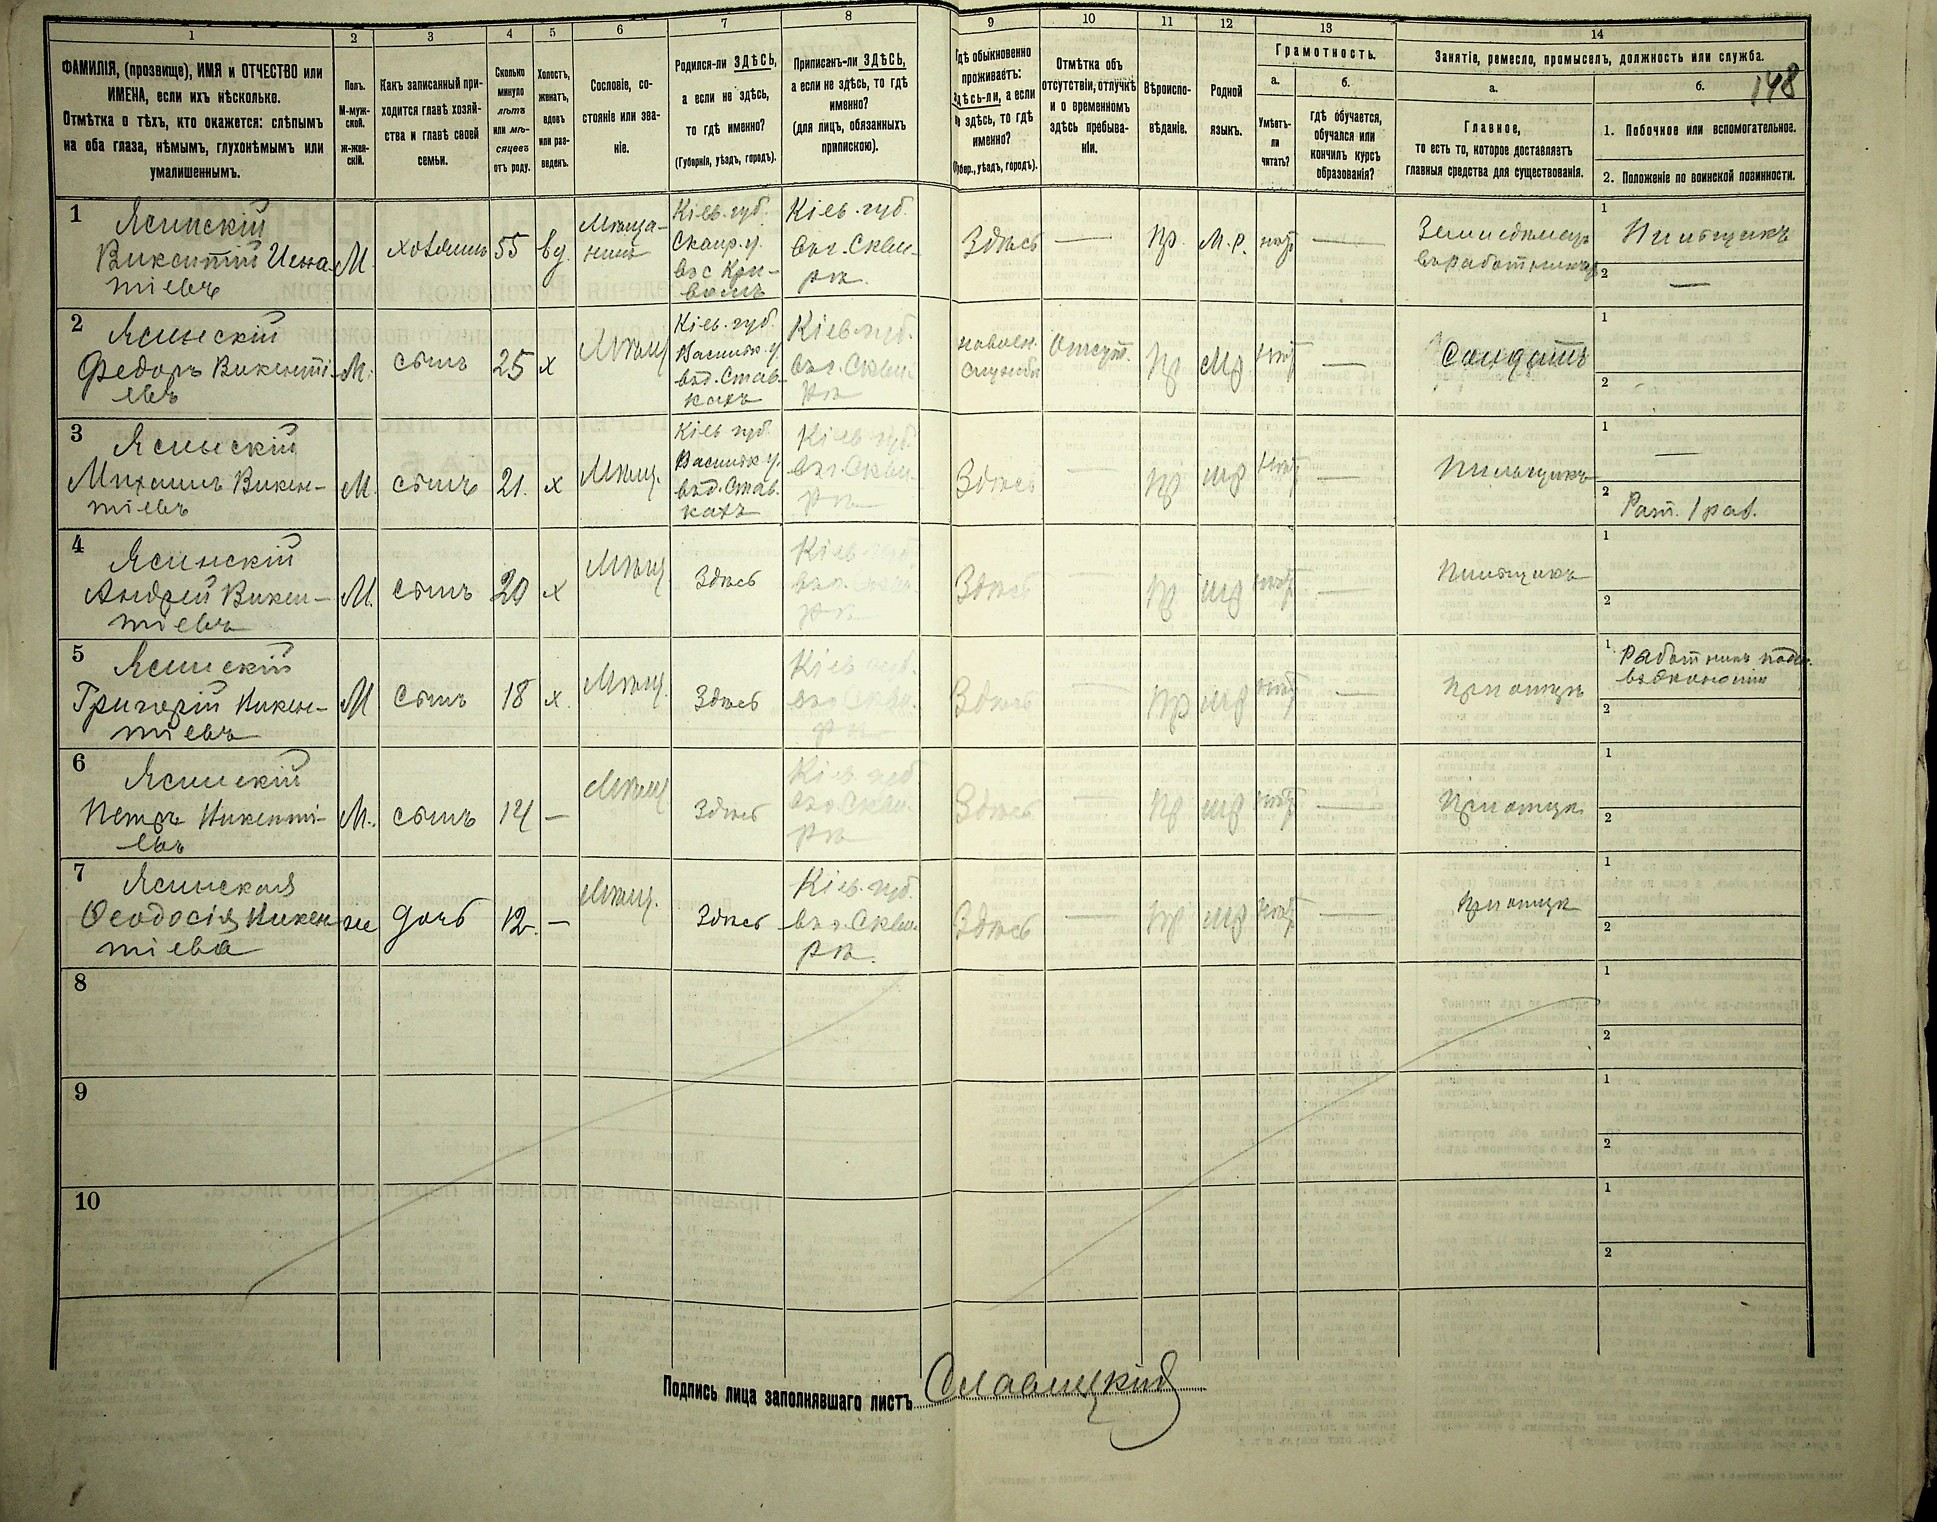 148
1 2 3 4 5 6 7 8 9 10 11 12 13 14
ФАМИЛІЯ, (прозвище), ИМЯ и ОТЧЕСТВО или
ИМЕНА, если ихъ нѣсколько.
Отмѣтка о тѣхъ, кто окажется: слѣпымъ
на оба глаза, нѣмымъ, глухонѣмымъ или
умалишеннымъ.
Полъ.
М-муж-
ской.
ж-жен-
скій.
Какъ записанный при-
ходится главѣ хозяй-
ства и главѣ своей
семьи.
Сколько
минуло
лѣтъ
или мѣ-
сяцевъ
отъ роду.
Холостъ,
женатъ,
вдовъ
или раз-
веденъ.
Сословіе, со-
стояніе или зва-
ніе.
Родился-ли ЗДѢСЬ,
а если не здѣсь,
то гдѣ именно?
(Губернія, уѣздъ, городъ).
Приписанъ-ли ЗДѢСЬ,
а если не здѣсь, то гдѣ
именно?
(для лицъ, обязанныхъ
припискою).
Гдѣ обыкновенно
проживаетъ:
здѣсь-ли, а если
не здѣсь, то гдѣ
именно?
(Губер., уѣздъ, городъ).
Отмѣтка объ
отсутствіи, отлучкѣ
и о временномъ
здѣсь пребыва-
ніи.
Вѣроиспо-
вѣданіе.
Родной
языкъ.
Грамотность.
а.
Умѣетъ-
ли
читать?
б.
гдѣ обучается,
обучался или
кончилъ курсъ
образованія?
Занятіе, ремесло, промыселъ, должность или служба.
а.
Главное,
то есть то, которое доставляетъ
главныя средства для существованія.
б.
1. Побочное или вспомогательное.
2. Положеніе по воинской повинности.
1
Ясинскій
Викентій Игна-
тіевъ
М.
хозяинъ
55
вд.
Мѣща-
нинъ
Кіев. губ.
Сквир. у.
въ с. Кри-
вомъ
Кіев. губ.
въ г.Скви-
рѣ.
Здѣсь
—
Пр.
М. Р.
нѣтъ
—
Земледѣлецъ
1
Пильщикъ
2
—
2
Ясинскій
Федоръ Викенті-
евъ
М.
сынъ
25
х
Мѣщ
Кіев. губ.
Васильк. у.
въ д. Став-
кахъ
Кіев. губ.
въ г. Скви-
рѣ
на воен.
службѣ
Отсут.
Пр
МР
нѣтъ
—
Солдатъ
1
2
3
Ясинскій
Михаилъ Викен-
тіевъ
М.
сынъ
21.
х
Мѣщ.
Кіев губ.
Васильк у.
въ д. Став.
кахъ
Кіев. губ.
въ г. Скви-
рѣ
Здѣсь
—
Пр
МР
Нѣтъ
—
Пильщикъ
1
—
2
Рат. 1 раз.
4
Ясинскій
Андрей Викен-
тіевъ
М.
сынъ
20
х
Мѣщ
Здѣсь
Кіев. губ.
въ г. Скви-
рѣ
Здѣсь
—
Пр
МР
нѣтъ
—
Пильщикъ
1
2
5
Ясинскій
Григорій Викен-
тіевъ
М
сынъ
18
х.
Мѣщ.
Здѣсь
Кіев. губ.
въ г. Скви-
рѣ
Здѣсь
—
Пр
МР
нѣтъ
—
При отцѣ
1
Работникъ
въ экономіи
2
6
Ясинскій
Петръ Викенті-
евъ
М.
сынъ
14
—
Мѣщ
Здѣсь
Кіев. губ
въ г. Скви-
рѣ
Здѣсь
—
Пр
МР
нѣтъ
—
При отцѣ
1
2
7
Ясинская
Ѳеодосія Викен-
тіева
ж
дочь
12.
—
Мѣщ.
Здѣсь
Кіев. губ.
въ г. Скви-
рѣ.
Здѣсь
—
Пр
МР
Нѣтъ
—
При отцѣ
1
2
8
1
2
9
1
2
10
1
2
Подпись лица заполнявшаго листъ Славицкій